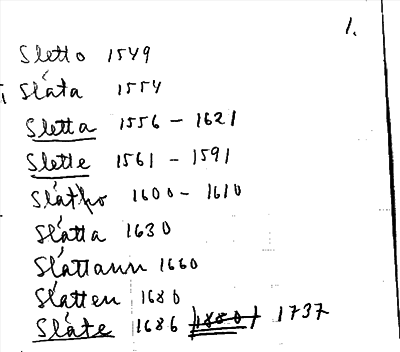 1.
Sletto 1549
Sláta 1554
Sletta 1556 - 1621
Slette 1561 - 1591
Slátho 1600 - 1610
Slátta 1630
Sláttann 1660
Slátten 1680
Sláte 1686 (1880) 1737